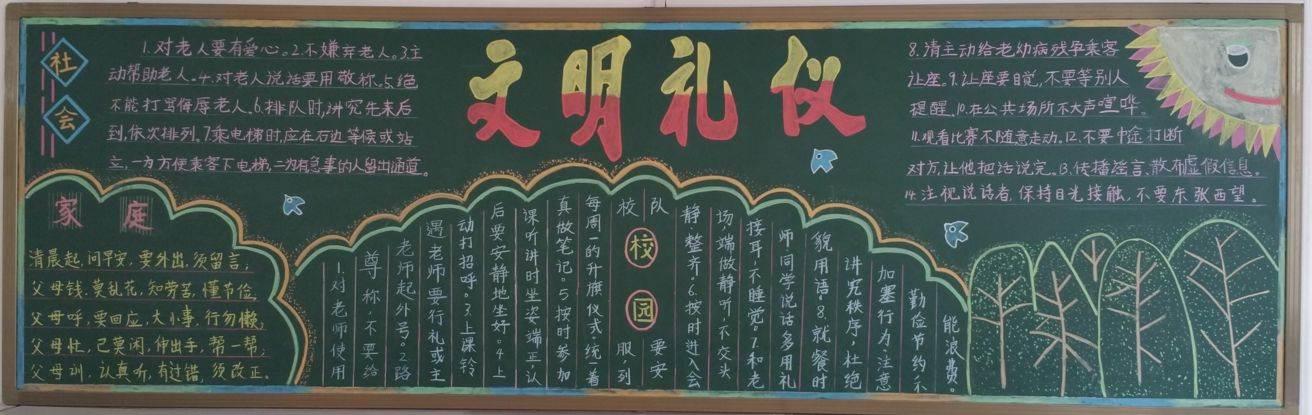 文明礼仪
社会
1.对老人要有爱心。2.不嫌弃老人。3.主
动帮助老人。4.对老人说话要用敬称。5.绝
不能打骂侮辱老人。6.排队时,讲究先来后
到,依次排列。7.乘电梯时应在右边等候或站
立,一为方便乘客下电梯,二为有急事的人留出通道。
8.请主动给老幼病残孕乘客
让座。9.让座要自觉,不要等别人
提醒。10.在公共场所不大声喧哗。
11.观看比赛不随意走动。12.不要中途打断
对方,让他把话说完。13.传播谣言、散布虚假信息。
14.注视说话者,保持目光接触,不要东张西望。
家庭
清晨起,问早安,要外出,须留言;
父母钱,莫乱花,知劳苦,懂节俭,
父母呼,要回应,大小事,行勿懒;
父母忙,己莫闲,伸出手,帮一帮;
父母训,认真听,有过错,须改正。
校园
1.对老师使用
尊称,不要给
老师起外号。2.路
遇老师要行礼或主
动打招呼。3.上课铃
后要安静地坐好。4.上
课听讲时坐姿端正,认
真做笔记。5.按时参加
每周一的升旗仪式,统一着
校服列
队要安
静,整齐。6.按时进入会
场,端做静听,不交头
接耳,不睡觉。7.和老
师同学说话多用礼
貌用语。8.就餐时
讲究秩序,杜绝
加塞行为,注意
勤俭节约,不
能浪费。